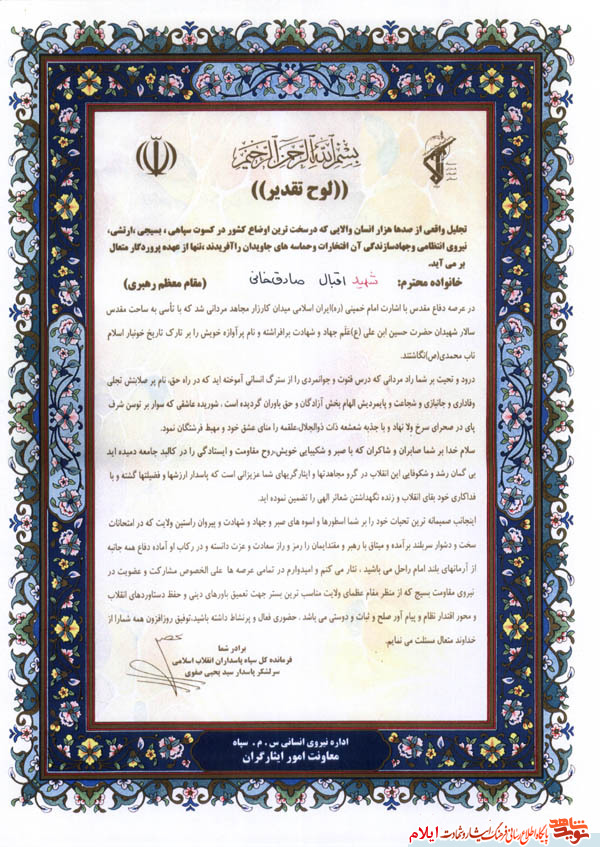 بسم الله الرحمن الرحیم
((لوح تقدیر))
تجلیل واقعی از صدها هزار انسان والایی که درسخت ترین اوضاع کشور در کسوت سپاهی ، بسیجی ،ارتشی،
نیروی انتظامی وجهادسازندگی آن افتخارات وحماسه های جاویدان راآفریدند ،تنها از عهده پروردگار متعال
بر می آید.
خانواده محترم: شهید اقبال صادقخانی (مقام معظم رهبری)
در عرصه دفاع مقدس با اشارت امام خمینی (ره)ایران اسلامی میدان کارزار مجاهد مردانی شد که با تأسی به ساحت مقدس
سالار شهیدان حضرت حسین ابن علی (ع)عَلَم جهاد و شهادت برافراشته و نام پرآوازه خویش را بر تارک تاریخ خونبار اسلام
ناب محمدی(ص)نگاشتند.
درود و تحیت بر شما راد مردانی که درس فتوت و جوانمردی را از سترگ انسانی آموخته اید که در راه حق، نام پر صلابتش تجلی
وفاداری و جانبازی و شجاعت و پایمردیش الهام بخش آزادگان و حق باوران گردیده است ، شوریده عاشقی که سوار بر توسن شرف
پای در صحرای سرخ ولا نهاد و با جذبه شعشعه ذات ذوالجلال،علقمه را منای عشق خود و مهبط فرشتگان نمود.
سلام خدا بر شما صابران و شاکران که با صبر و شکیبایی خویش،روح مقاومت و ایستادگی را در کالبد جامعه دمیده اید
بی گمان رشد و شکوفایی این انقلاب در گرو مجاهدتها و ایثارگریهای شما عزیزانی است که پاسدار ارزشها و فضیلتها گشته و با
فداکاری خود بقای انقلاب و زنده نگهداشتن شعائر الهی را تضمین نموده اید.
اینجانب صمیمانه ترین تحیات خود را بر شما اسطورها و اسوه های صبر و جهاد و شهادت و پیروان راستین ولایت که در امتحانات
سخت و دشوار سربلند برآمده و میثاق با رهبر و مقتدایمان را رمز و راز سعادت و عزت دانسته و در رکاب او آماده دفاع همه جانبه
از آرمانهای بلند امام راحل می باشید ، نثار می کنم و امیدوارم در تمامی عرصه ها علی الخصوص مشارکت و عضویت در
نیروی مقاومت بسیج که از منظر مقام عظمای ولایت مناسب ترین بستر جهت تعمیق باورهای دینی و حفظ دستاوردهای انقلاب
و محور اقتدار نظام و پیام آور صلح و ثبات و دوستی می باشد ، حضوری فعال و پرنشاط داشته باشید،توفیق روزافزون همه شمارا از
خداوند متعال مسئلت می نمایم.
برادر شما
فرمانده کل سپاه پاسداران انقلاب اسلامی
سرلشکر پاسدار سید یحیی صفوی
اداره نیروی انسانی س . م . سپاه
معاونت امور ایثارگران
نوید شاهد پایگاه اطلاع رسانی فرهنگ ایثار و شهادت ایلام